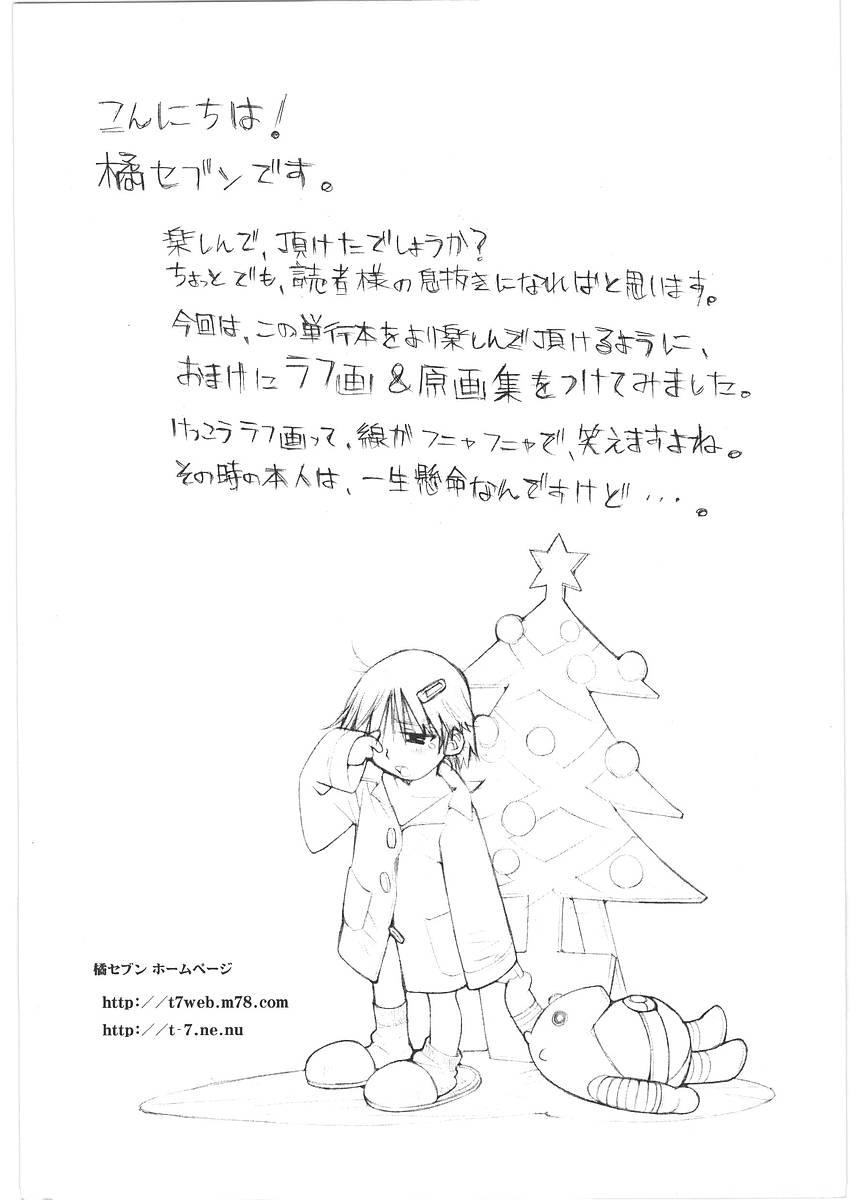 こんにちは!
橘セブンです。
楽しんで、頂けたでしょうか?
ちょっとでも、読者様の息抜きになればと思います。
今回は、この単行本をより楽しんで頂けるように、
おまけにラフ画&原画集をつけてみました。
けっこうラフ画って、線がフニャフニャで、笑えますよね。
その時の本人は、一生懸命なんですけど・・・。
橘セブン ホームページ
http://t7web.m78.com
http://t-7.ne.nu